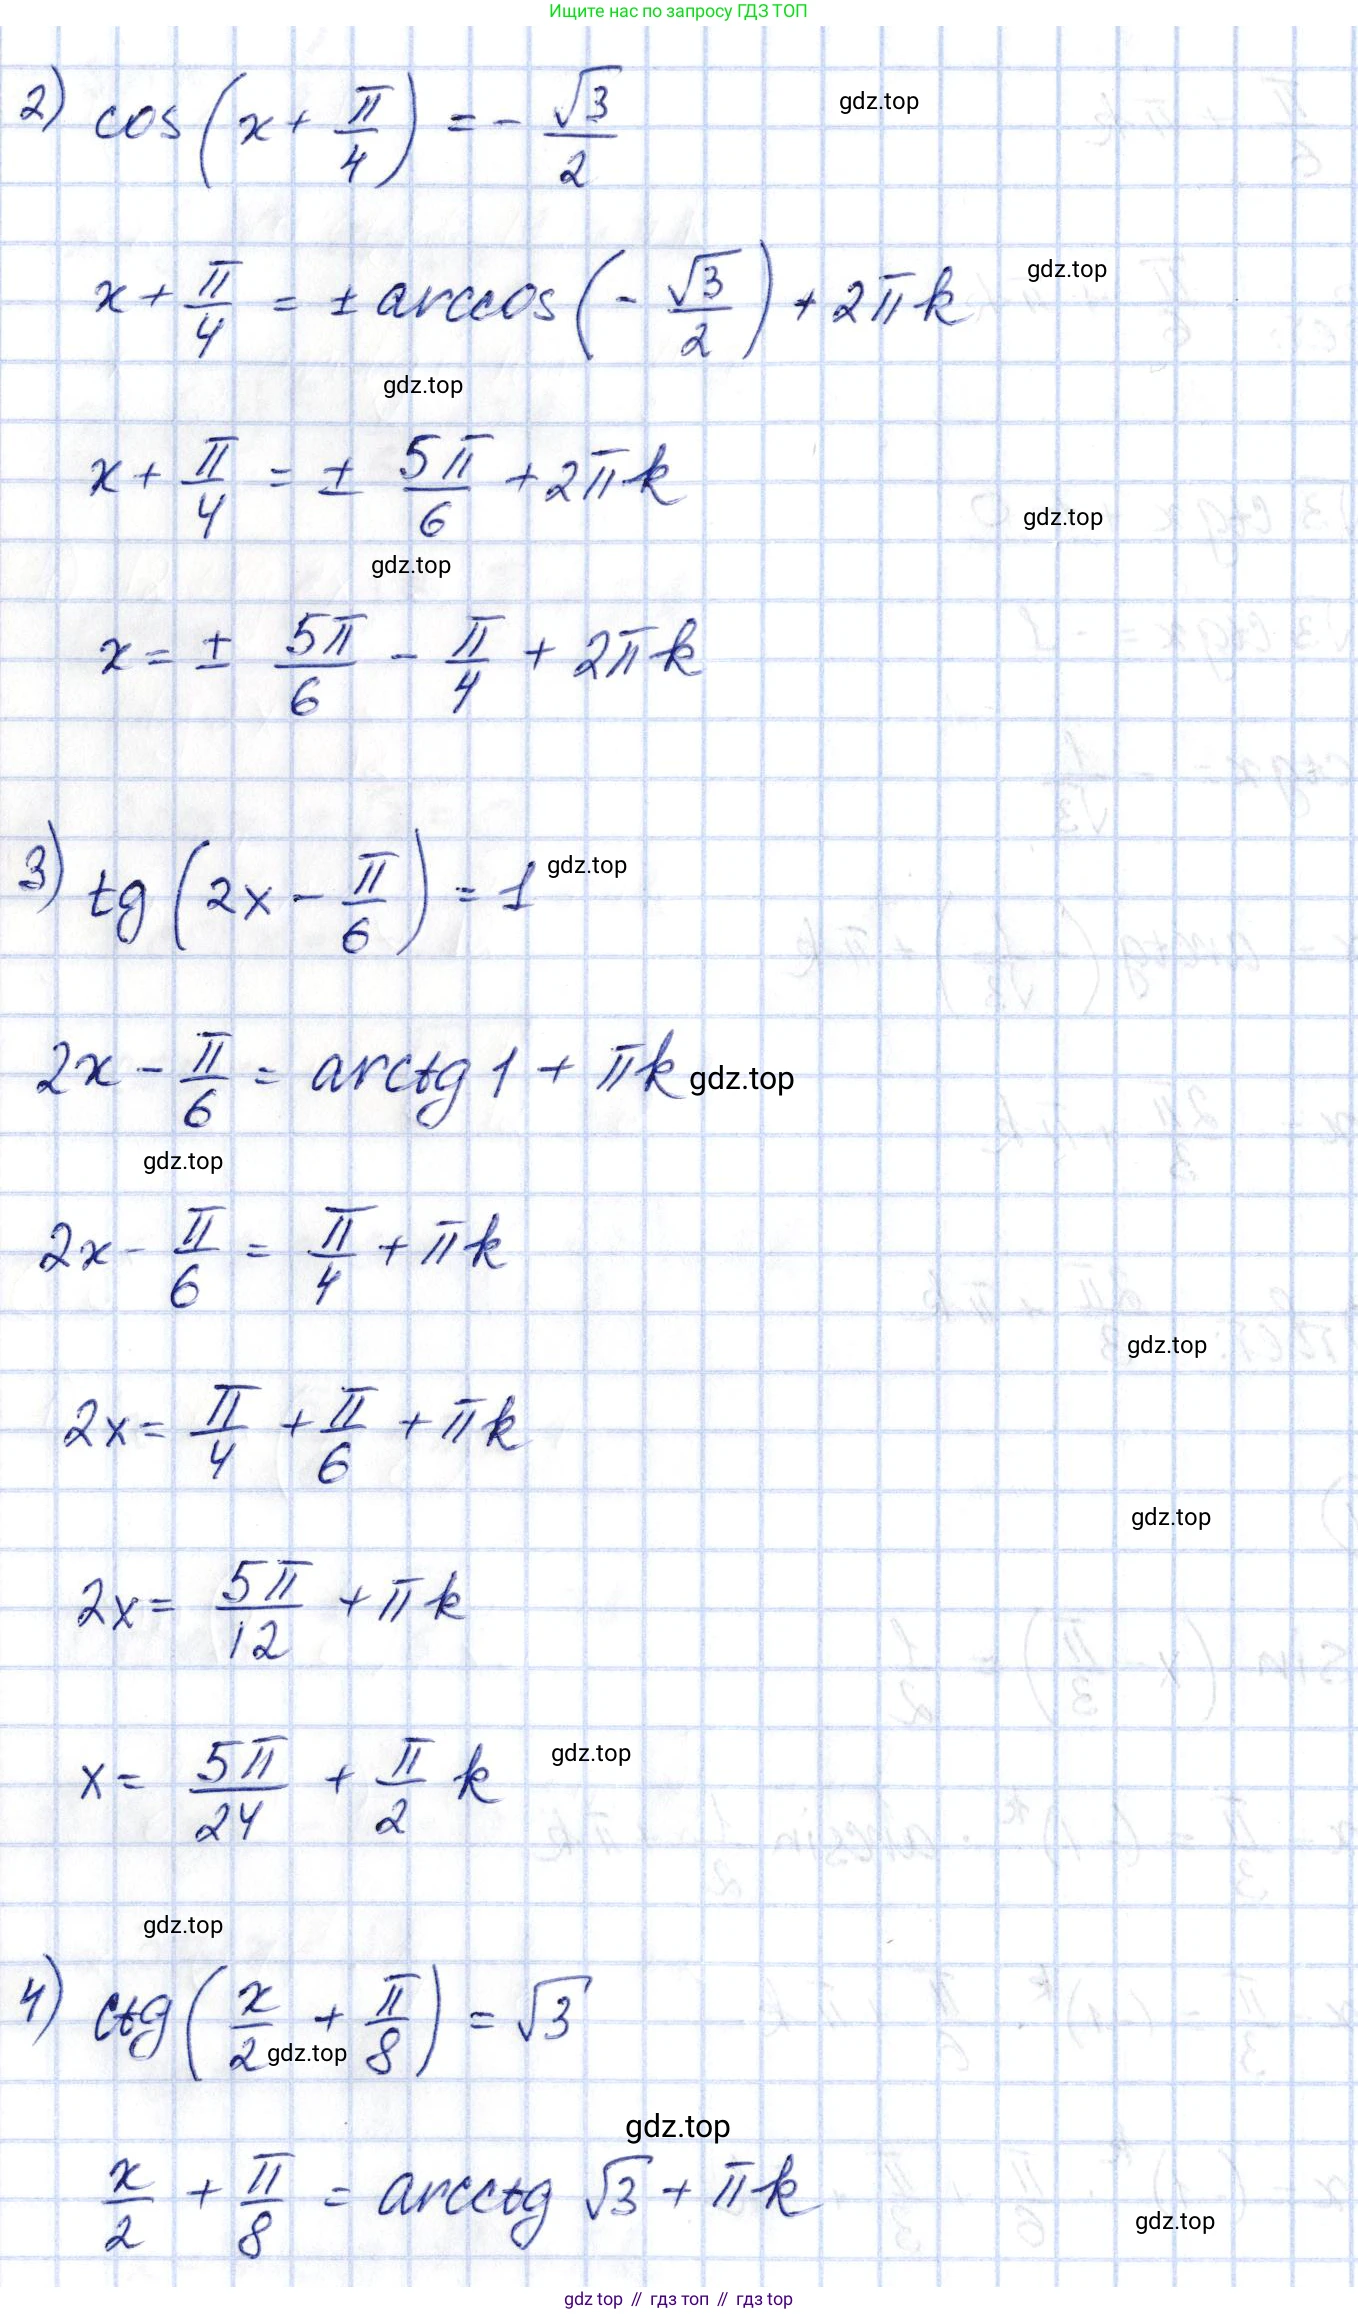 Ищите нас по запросу ГДЗ ТОП
2) cos(x + π/4) = - √3/2
gdz.top
x + π/4 = ± arccos(- √3/2) + 2πk
gdz.top
gdz.top
x + π/4 = ± 5π/6 + 2πk
gdz.top
gdz.top
x = ± 5π/6 - π/4 + 2πk
3) tg(2x - π/6) = 1
gdz.top
2x - π/6 = arctg 1 + πk
gdz.top
gdz.top
2x - π/6 = π/4 + πk
gdz.top
2x = π/4 + π/6 + πk
gdz.top
2x = 5π/12 + πk
x = 5π/24 + π/2 k
gdz.top
gdz.top
4) ctg(x/2 + π/8) = √3
gdz.top
gdz.top
x/2 + π/8 = arcctg √3 + πk
gdz.top
gdz.top // гдз топ // gdz top